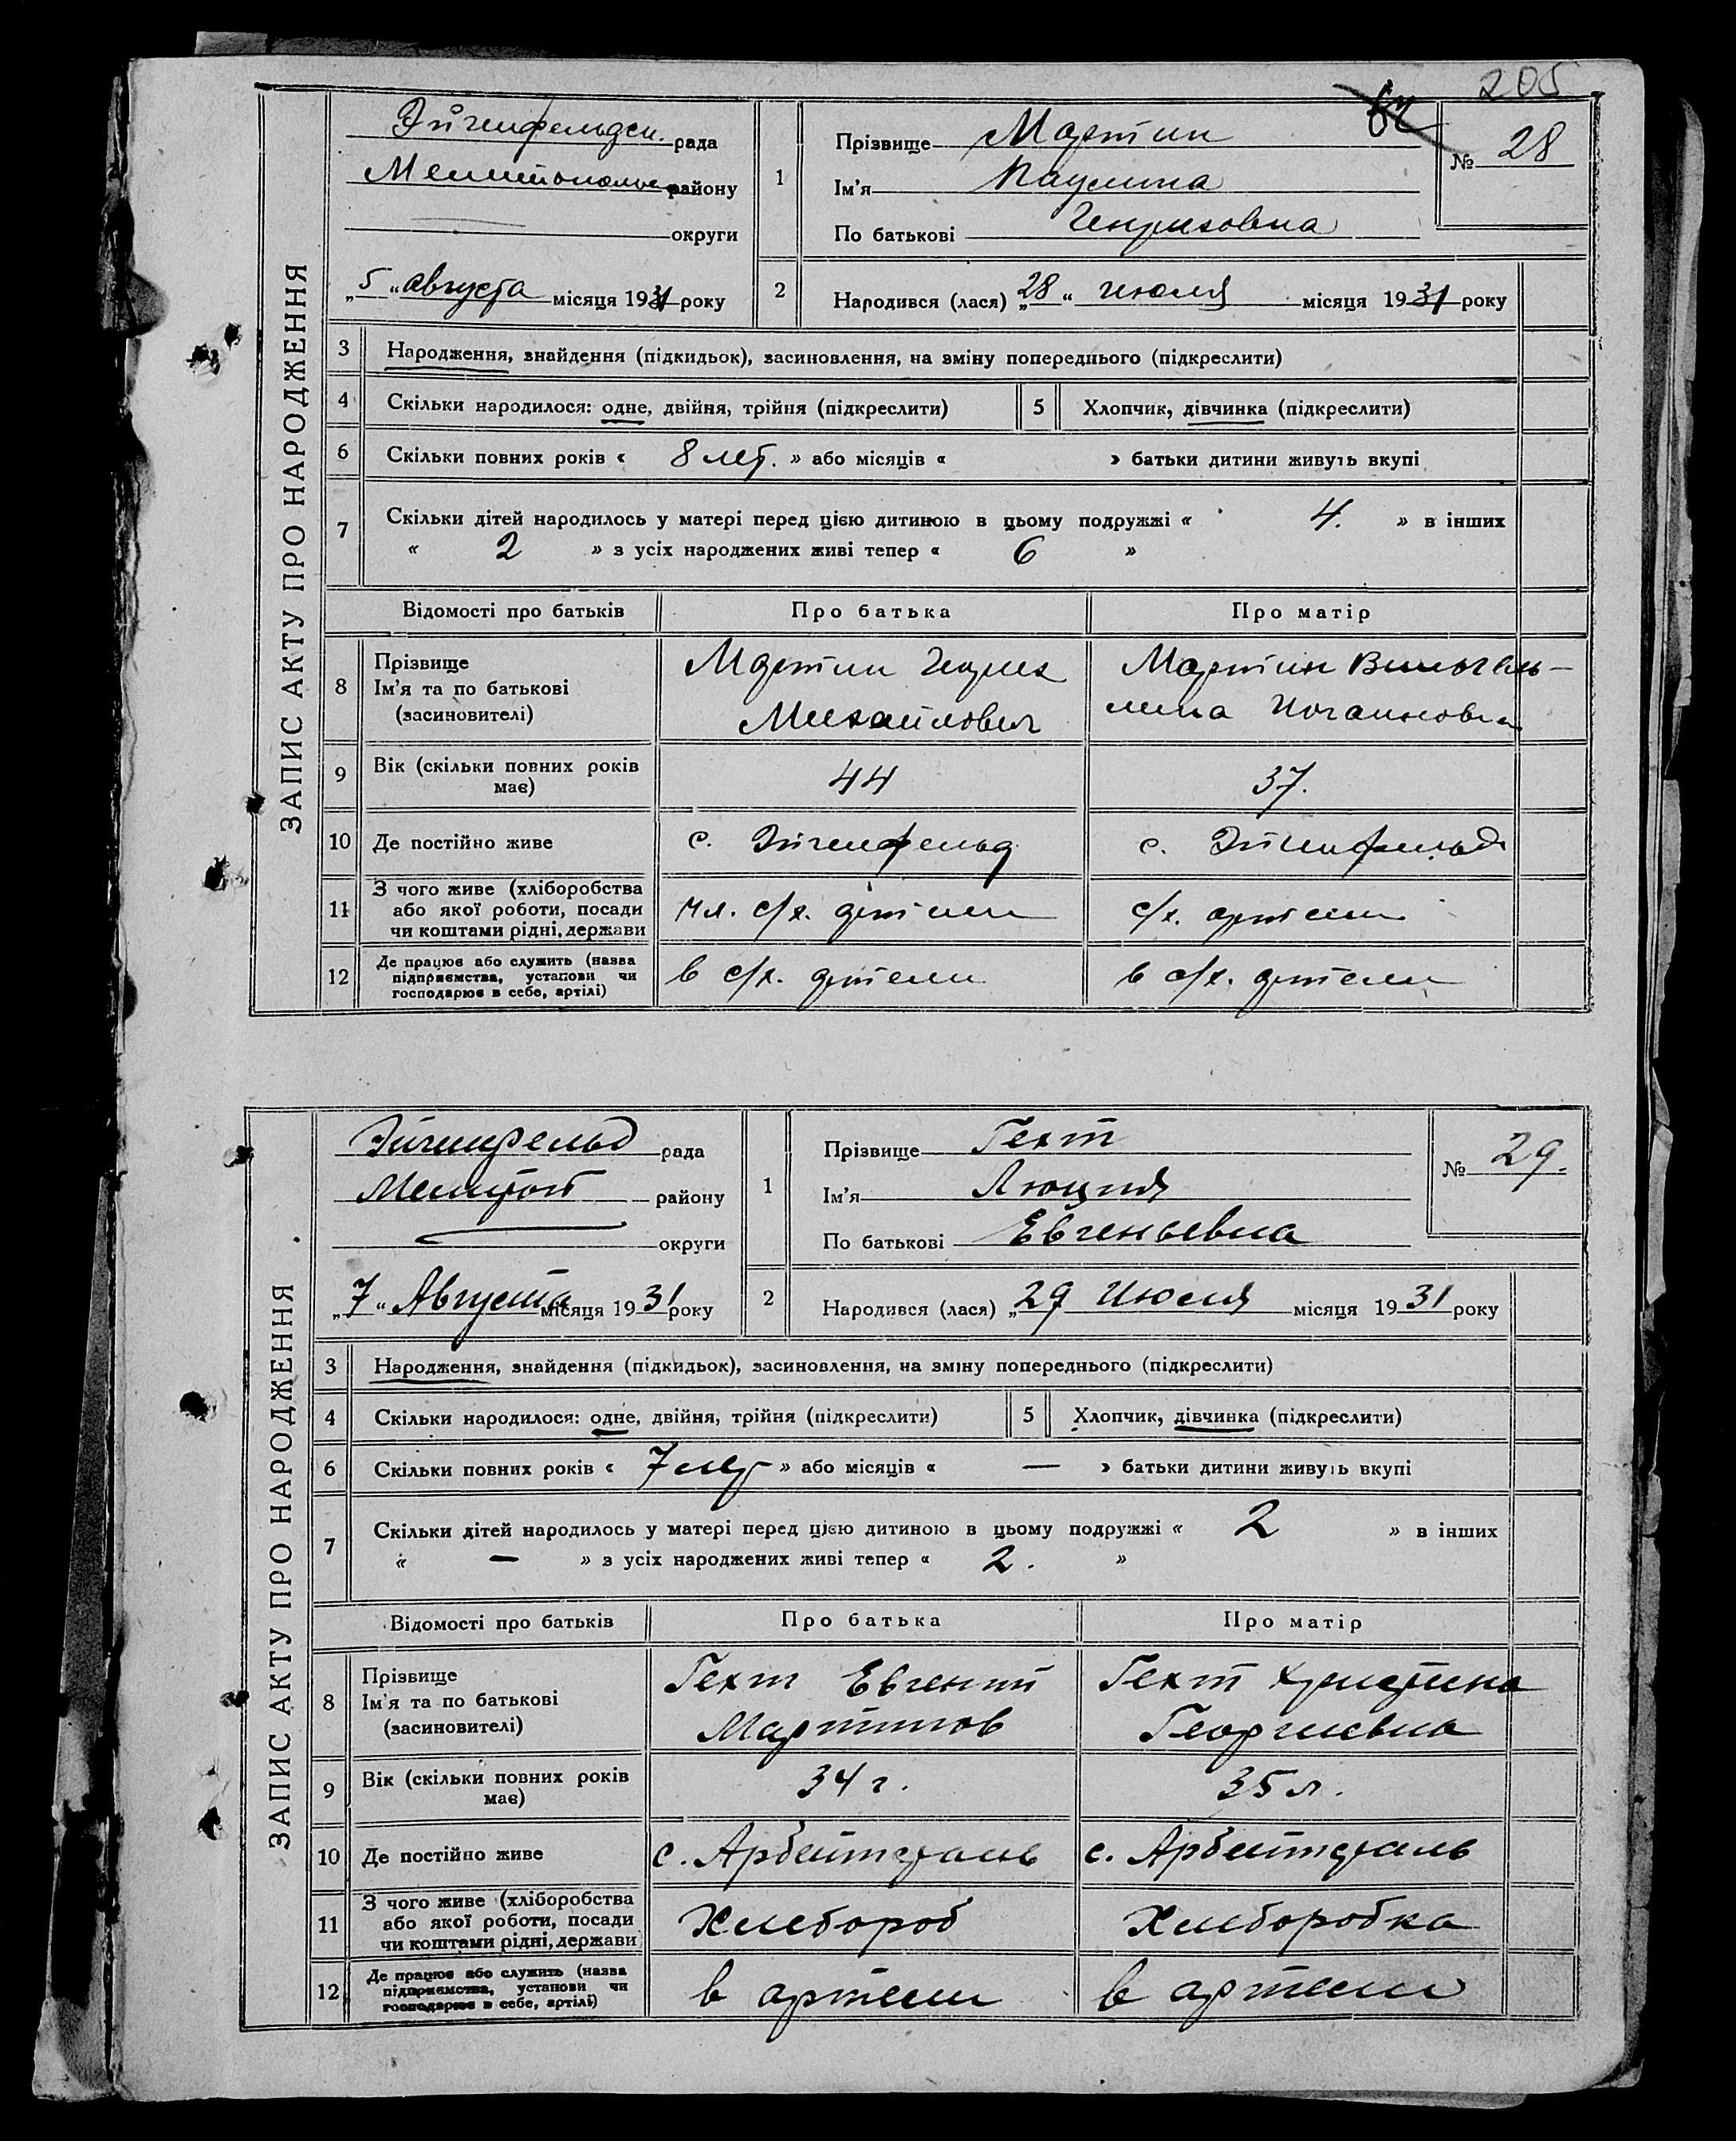 205
ЗАПИС АКТУ ПРО НАРОДЖЕННЯ
Эйгенфельдск. рада
Мелитопольск району
округи
„5“ августа місяця 1931 року
1
Прізвище Мартин
Ім'я Паулина
По батькові Генриховна
№ 28
2
Народився (лася) „28“ июля місяця 1931 року
3 Народження, знайдення (підкидьок), засиновлення, на зміну попереднього (підкреслити)
4 Скільки народилося: одне, двійня, трійня (підкреслити) 5 Хлопчик, дівчинка (підкреслити)
6 Скільки повних років « 8 лет. » або місяців « » батьки дитини живуть вкупі
7 Скільки дітей народилось у матері перед цією дитиною в цьому подружжі « 4. » в інших
« 2 » з усіх народжених живі тепер « 6 »
Відомості про батьків Про батька Про матір
8 Прізвище
Ім'я та по батькові
(засиновителі)
Мартин Генрих
Михайлович
Мартин Вильгель-
мина Иоганновна
9 Вік (скільки повних років
має)
44 37.
10 Де постійно живе с. Эйгенфельд с. Эйгенфельд
11 З чого живе (хліборобства
або якої роботи, посади
чи коштами рідні, держави
чл. с/х. артели с/х. артели
12 Де працює або служить (назва
підприємства, установи чи
господарює в себе, артілі)
в с/х. артели в с/х. артели
ЗАПИС АКТУ ПРО НАРОДЖЕННЯ
Эйгенфельд рада
Мелитоп району
округи
„7“ Августа місяця 1931 року
1
Прізвище Гехт
Ім'я Люция
По батькові Евгеньевна
№ 29.
2
Народився (лася) „29 Июля місяця 1931 року
3 Народження, знайдення (підкидьок), засиновлення, на зміну попереднього (підкреслити)
4 Скільки народилося: одне, двійня, трійня (підкреслити) 5 Хлопчик, дівчинка (підкреслити)
6 Скільки повних років « 7 лет » або місяців « — » батьки дитини живуть вкупі
7 Скільки дітей народилось у матері перед цією дитиною в цьому подружжі « 2 » в інших
« — » з усіх народжених живі тепер « 2. »
Відомості про батьків Про батька Про матір
8 Прізвище
Ім'я та по батькові
(засиновителі)
Гехт Евгений
Мартинов
Гехт Христина
Георгиевна
9 Вік (скільки повних років
має)
34 г. 35 л.
10 Де постійно живе с. Арбейтсталь с. Арбейтсталь
11 З чого живе (хліборобства
або якої роботи, посади
чи коштами рідні, держави
Хлебороб Хлеборобка
12 Де працює або служить (назва
підприємства, установи чи
господарює в себе, артілі)
в артели в артели